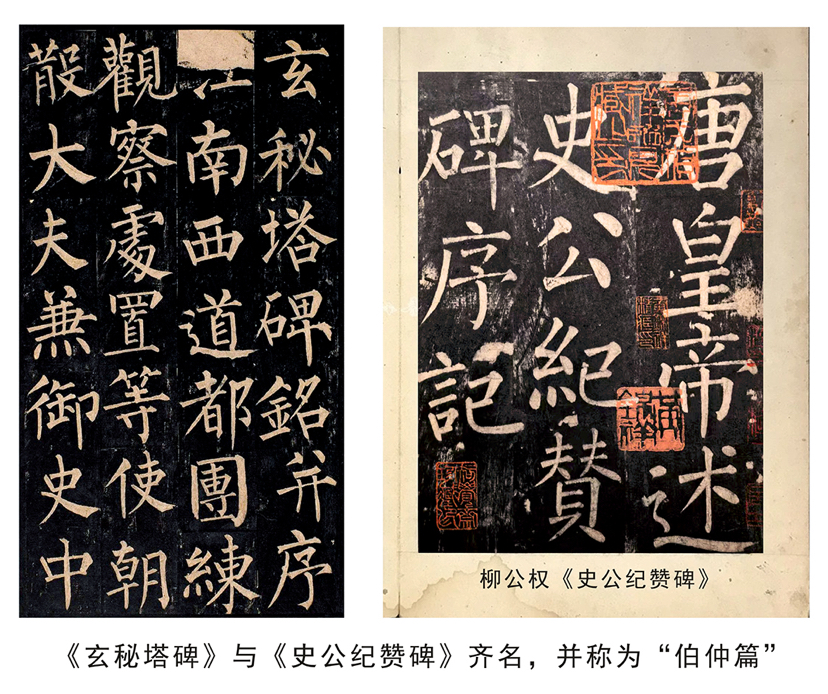 玄秘塔碑銘并序
江南西道都團練
觀察處置等使朝
散大夫兼御史中
唐皇帝述
史公紀賛
碑序記
柳公权《史公纪赞碑》
《玄秘塔碑》与《史公纪赞碑》齐名，并称为“伯仲篇”